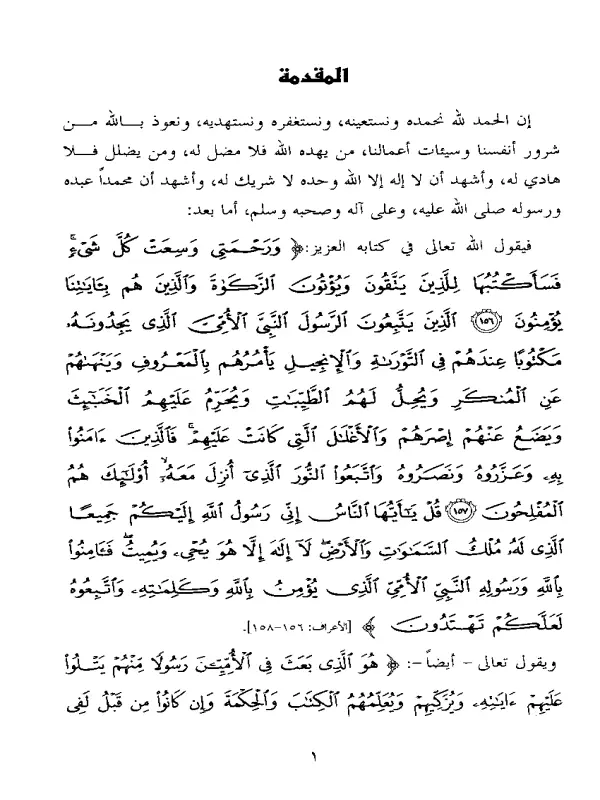 المقدمة
إن الحمد لله نحمده ونستعينه، ونستغفره ونستهديه، ونعوذ بالله من
شرور أنفسنا وسيئات أعمالنا، من يهده الله فلا مضل له، ومن يضلل فلا
هادي له، وأشهد أن لا إله إلا الله وحده لا شريك له، وأشهد أن محمداً عبده
ورسوله صلى الله عليه، وعلى آله وصحبه وسلم، أما بعد:
فيقول الله تعالى في كتابه العزيز: ﴿ وَرَحْمَتِى وَسِعَتْ كُلَّ شَىْءٍۚ
فَسَأَكْتُبُهَا لِلَّذِينَ يَتَّقُونَ وَيُؤْتُونَ ٱلزَّكَوٰةَ وَٱلَّذِينَ هُم بِـَٔايَـٰتِنَا
يُؤْمِنُونَ ١٥٦ ٱلَّذِينَ يَتَّبِعُونَ ٱلرَّسُولَ ٱلنَّبِىَّ ٱلْأُمِّىَّ ٱلَّذِى يَجِدُونَهُۥ
مَكْتُوبًا عِندَهُمْ فِى ٱلتَّوْرَىٰةِ وَٱلْإِنجِيلِ يَأْمُرُهُم بِٱلْمَعْرُوفِ وَيَنْهَىٰهُمْ
عَنِ ٱلْمُنكَرِ وَيُحِلُّ لَهُمُ ٱلطَّيِّبَـٰتِ وَيُحَرِّمُ عَلَيْهِمُ ٱلْخَبَـٰٓئِثَ
وَيَضَعُ عَنْهُمْ إِصْرَهُمْ وَٱلْأَغْلَـٰلَ ٱلَّتِى كَانَتْ عَلَيْهِمْۚ فَٱلَّذِينَ ءَامَنُوا۟
بِهِۦ وَعَزَّرُوهُ وَنَصَرُوهُ وَٱتَّبَعُوا۟ ٱلنُّورَ ٱلَّذِىٓ أُنزِلَ مَعَهُۥٓۙ أُو۟لَـٰٓئِكَ هُمُ
ٱلْمُفْلِحُونَ ١٥٧ قُلْ يَـٰٓأَيُّهَا ٱلنَّاسُ إِنِّى رَسُولُ ٱللَّهِ إِلَيْكُمْ جَمِيعًا
ٱلَّذِى لَهُۥ مُلْكُ ٱلسَّمَـٰوَٰتِ وَٱلْأَرْضِۖ لَآ إِلَـٰهَ إِلَّا هُوَ يُحْىِۦ وَيُمِيتُۖ فَـَٔامِنُوا۟
بِٱللَّهِ وَرَسُولِهِ ٱلنَّبِىِّ ٱلْأُمِّىِّ ٱلَّذِى يُؤْمِنُ بِٱللَّهِ وَكَلِمَـٰتِهِۦ وَٱتَّبِعُوهُ
لَعَلَّكُمْ تَهْتَدُونَ ﴾ [الأعراف: ١٥٦-١٥٨].
ويقول تعالى - أيضاً -: ﴿ هُوَ ٱلَّذِى بَعَثَ فِى ٱلْأُمِّيِّـۧنَ رَسُولًا مِّنْهُمْ يَتْلُوا۟
عَلَيْهِمْ ءَايَـٰتِهِۦ وَيُزَكِّيهِمْ وَيُعَلِّمُهُمُ ٱلْكِتَـٰبَ وَٱلْحِكْمَةَ وَإِن كَانُوا۟ مِن قَبْلُ لَفِى
١